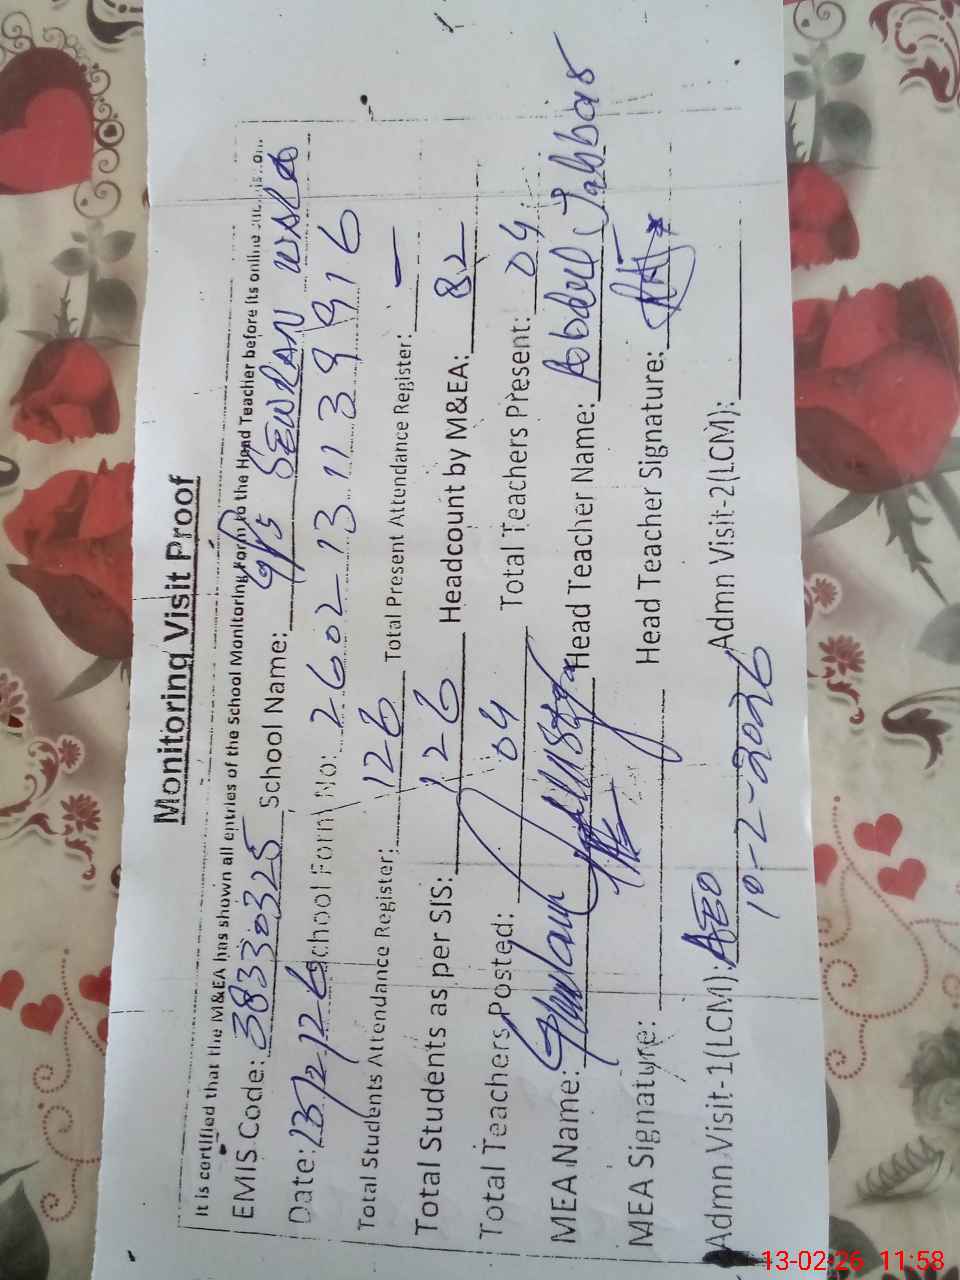 Monitoring Visit Proof
It is certified that the M&EA has shown all entries of the School Monitoring Form to the Head Teacher before its online
EMIS Code: 38330325 School Name: GPS SEWRAN WALA
Date: 13/2/26 School Form No: 2602131139916
Total Students Attendance Register: 126 Total Present Attendance Register: —
Total Students as per SIS: 126 Headcount by M&EA: 82
Total Teachers Posted: 04 Total Teachers Present: 04
MEA Name: Ghulam Mustafa Head Teacher Name: Abdul Jabbar
MEA Signature: Head Teacher Signature:
Admn Visit-1(LCM): AEO 10-2-2026 Admn Visit-2(LCM):
13-02-26 11:58